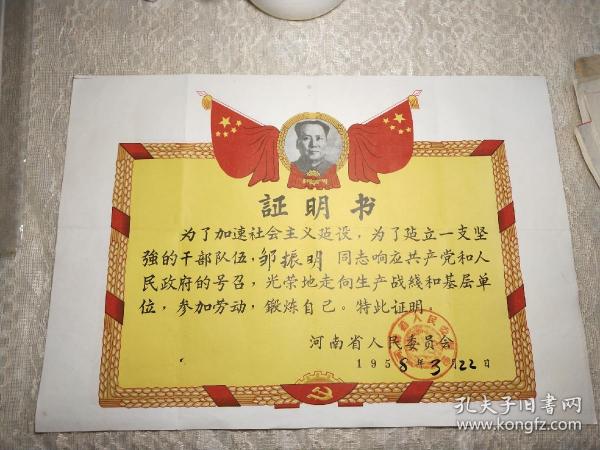 証明书
为了加速社会主义建设，为了建立一支坚
強的干部队伍，邹振明同志响应共产党和人
民政府的号召，光荣地走向生产战綫和基层单
位，参加劳动，鍛炼自己。特此証明
河南省人民委员会
1958年3月22日
孔夫子旧书网
www.kongfz.com